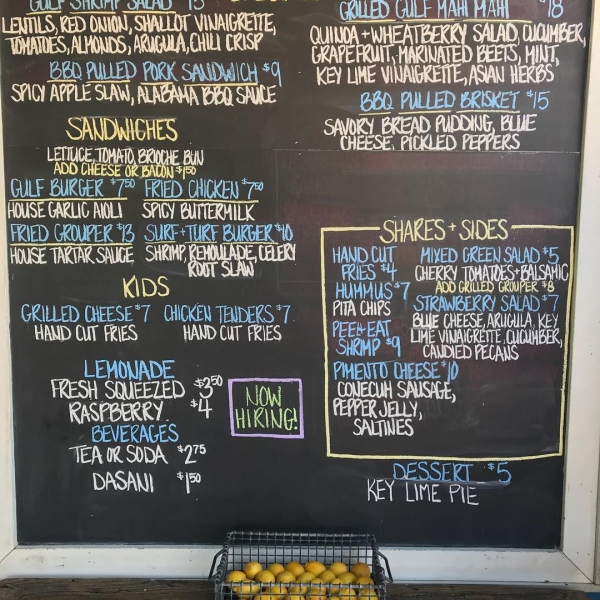 GULF SHRIMP SALAD $15
LENTILS, RED ONION, SHALLOT VINAIGRETTE,
TOMATOES, ALMONDS, ARUGULA, CHILI CRISP
BBQ PULLED PORK SANDWICH $9
SPICY APPLE SLAW, ALABAMA BBQ SAUCE
SANDWICHES
LETTUCE, TOMATO, BRIOCHE BUN
ADD CHEESE OR BACON $1.50
GULF BURGER $7.50
HOUSE GARLIC AIOLI
FRIED CHICKEN $7.50
SPICY BUTTERMILK
FRIED GROUPER $13
HOUSE TARTAR SAUCE
SURF+TURF BURGER $10
SHRIMP, REMOULADE, CELERY
ROOT SLAW
KIDS
GRILLED CHEESE $7
HAND CUT FRIES
CHICKEN TENDERS $7
HAND CUT FRIES
LEMONADE
FRESH SQUEEZED $3.50
RASPBERRY $4
BEVERAGES
TEA OR SODA $2.75
DASANI $1.50
NOW
HIRING!
GRILLED GULF MAHI MAHI $18
QUINOA + WHEATBERRY SALAD, CUCUMBER,
GRAPEFRUIT, MARINATED BEETS, MINT,
KEY LIME VINAIGRETTE, ASIAN HERBS
BBQ PULLED BRISKET $15
SAVORY BREAD PUDDING, BLUE
CHEESE, PICKLED PEPPERS
SHARES + SIDES
HAND CUT
FRIES $4
HUMMUS $7
PITA CHIPS
PEEL+EAT
SHRIMP $9
PIMENTO CHEESE $10
CONECUH SAUSAGE,
PEPPER JELLY,
SALTINES
MIXED GREEN SALAD $5
CHERRY TOMATOES + BALSAMIC
ADD GRILLED GROUPER $8
STRAWBERRY SALAD $7
BLUE CHEESE, ARUGULA, KEY
LIME VINAIGRETTE, CUCUMBER,
CANDIED PECANS
DESSERT $5
KEY LIME PIE